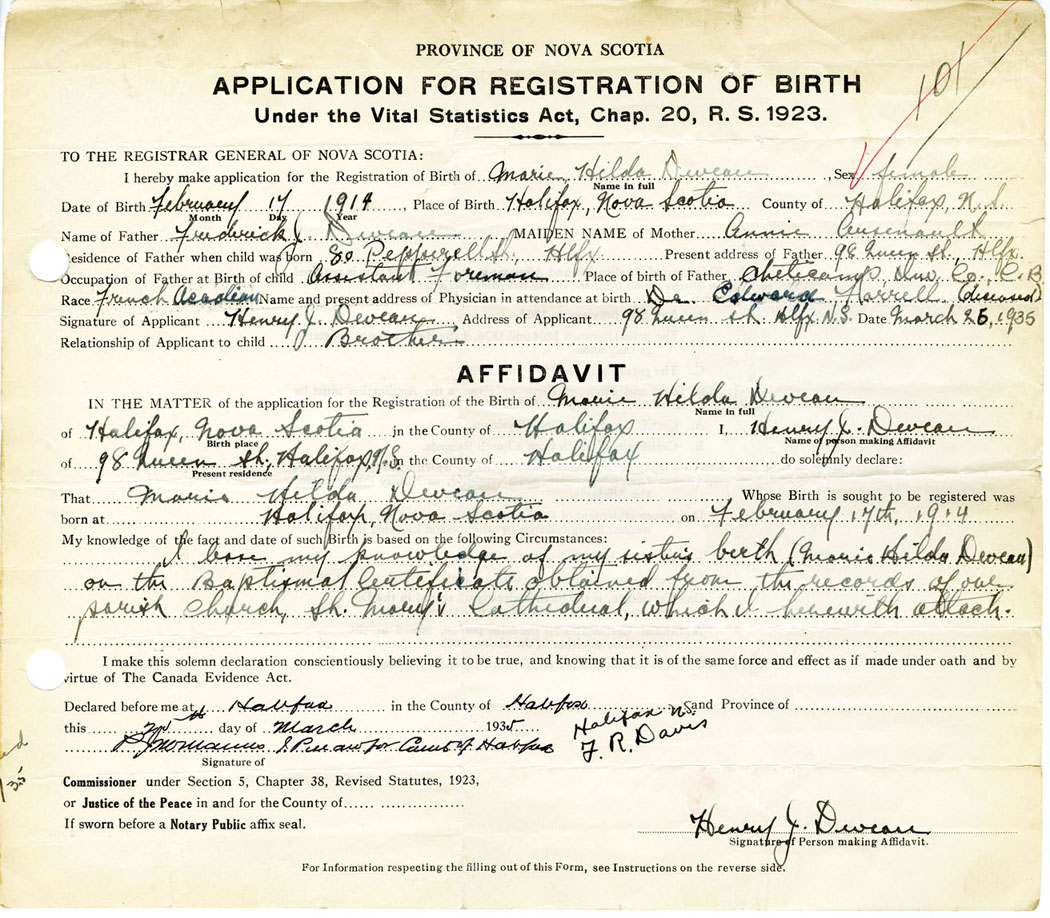 PROVINCE OF NOVA SCOTIA
APPLICATION FOR REGISTRATION OF BIRTH
Under the Vital Statistics Act, Chap. 20, R. S. 1923.
101
TO THE REGISTRAR GENERAL OF NOVA SCOTIA:
I hereby make application for the Registration of Birth of Marie Hilda Deveau, Sex female
Name in full
Date of Birth February 17 1914, Place of Birth Halifax, Nova Scotia County of Halifax, N.S.
Month Day Year
Name of Father Frederick J. Deveau MAIDEN NAME of Mother Annie Arsenault
Residence of Father when child was born 80 Pepperell St., Hlfx Present address of Father 98 Queen St., Hlfx.
Occupation of Father at Birth of child Assistant Foreman Place of birth of Father Chelicamp, Inv. Co., C.B
Race French Acadian Name and present address of Physician in attendance at birth Dr. Edward Farrell (diseased)
Signature of Applicant Henry J. Deveau Address of Applicant 98 Queen St. Hlfx. N.S. Date March 26, 1935
Relationship of Applicant to child Brother
AFFIDAVIT
IN THE MATTER of the application for the Registration of the Birth of Marie Hilda Deveau
Name in full
of Halifax, Nova Scotia in the County of Halifax I, Henry J. Deveau
Birth place Name of person making Affidavit
of 98 Queen St., Halifax, N.S. in the County of Halifax do solemnly declare:
Present residence
That Marie Hilda Deveau Whose Birth is sought to be registered was
born at Halifax, Nova Scotia on February 17th, 1914
My knowledge of the fact and date of such Birth is based on the following Circumstances:
I base my knowledge of my sister's birth (Marie Hilda Deveau)
on the Baptismal Certificate obtained from the records of our
parish Church, St. Mary's Cathedral, which I herewith attach.
I make this solemn declaration conscientiously believing it to be true, and knowing that it is of the same force and effect as if made under oath and by
virtue of The Canada Evidence Act.
Declared before me at Halifax in the County of Halifax and Province of
this day of March 1935 Halifax N.S.
Halifax F. R. Davis
Signature of
Commissioner under Section 5, Chapter 38, Revised Statutes, 1923,
or Justice of the Peace in and for the County of
If sworn before a Notary Public affix seal.
Henry J. Deveau
Signature of Person making Affidavit.
For Information respecting the filling out of this Form, see Instructions on the reverse side.